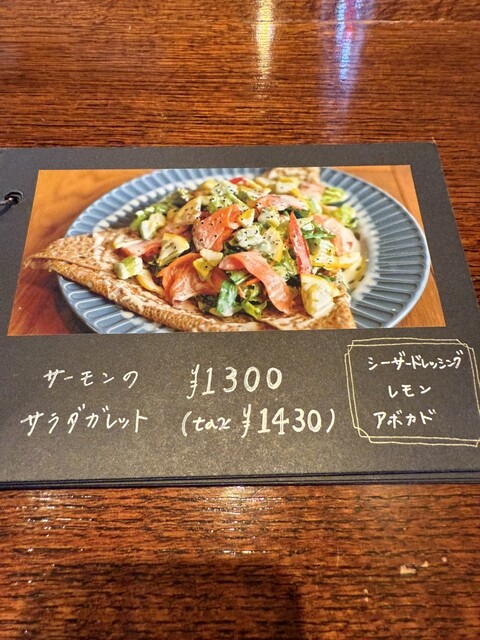 サーモンの ¥1300
サラダガレット (tax ¥1430)
シーザードレッシング
レモン
アボカド